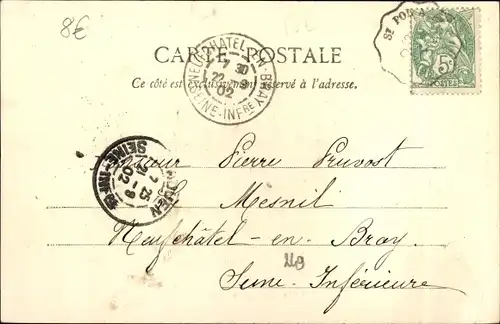 8€
CARTE POSTALE
Ce côté est exclusivement réservé à l'adresse.
NEUFCHATEL-EN-BRAY
7 30
22 -9
02
SEINE-INFRE
St POL
5c
POSTES
ROUEN
7 25
21 -9
02
SEINE-INFRE
Monsieur Pierre Pruvost
Mesnil
Neufchâtel-en-Bray
Seine-Inférieure